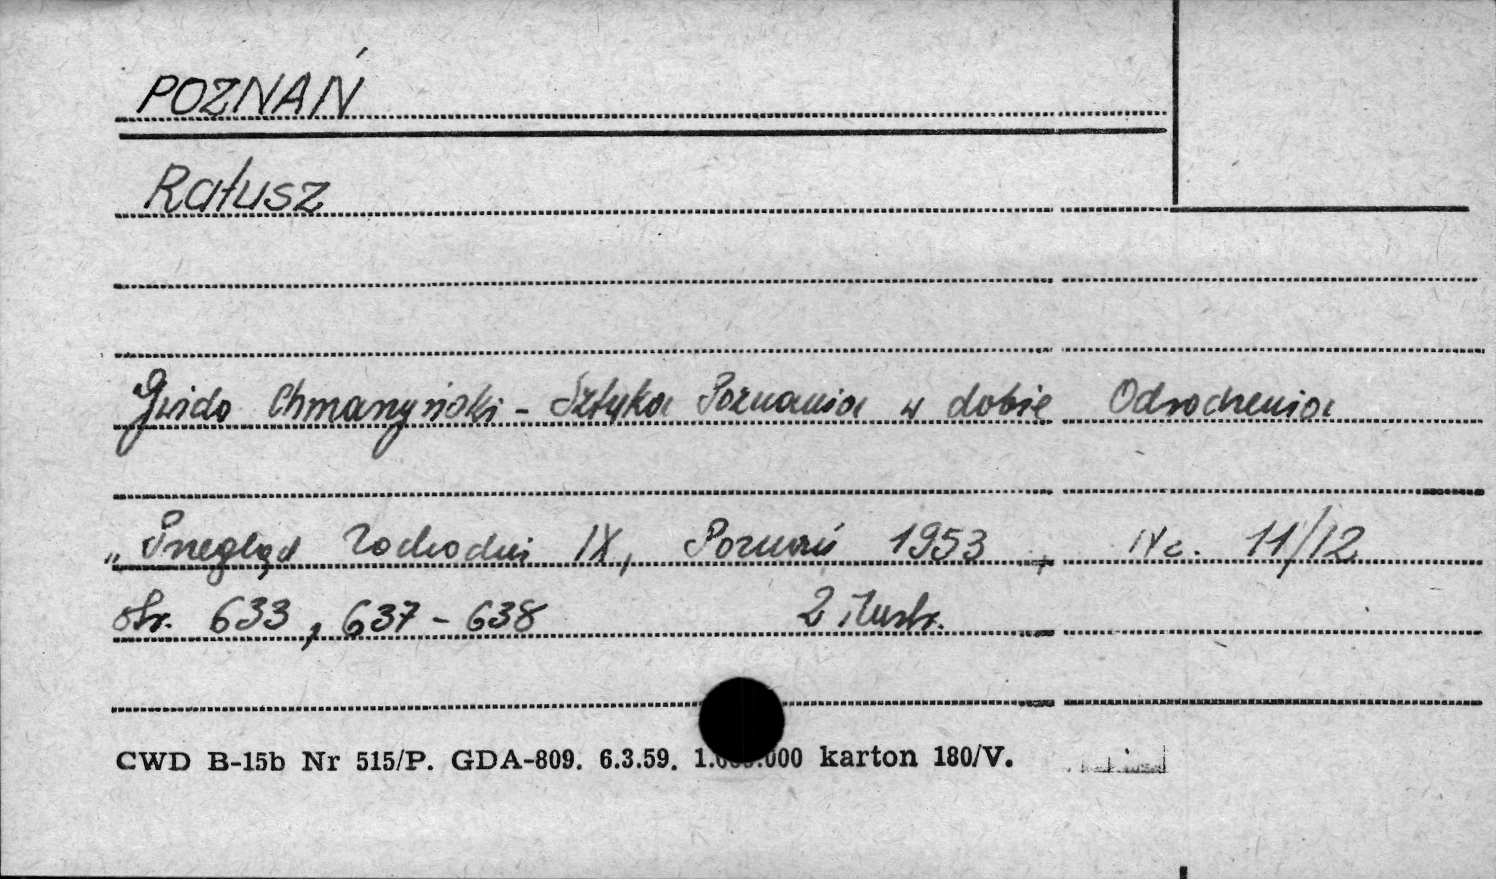 POZNAŃ
Ratusz
Gwido Chmarzyński - Sztuka Poznania w dobie Odrodzenia
„Przegląd Zachodni IX, Poznań 1953, Nr. 11/12
str. 633, 637-638 2 ilustr.
CWD B-15b Nr 515/P. GDA-809. 6.3.59. 1.000.000 karton 180/V.